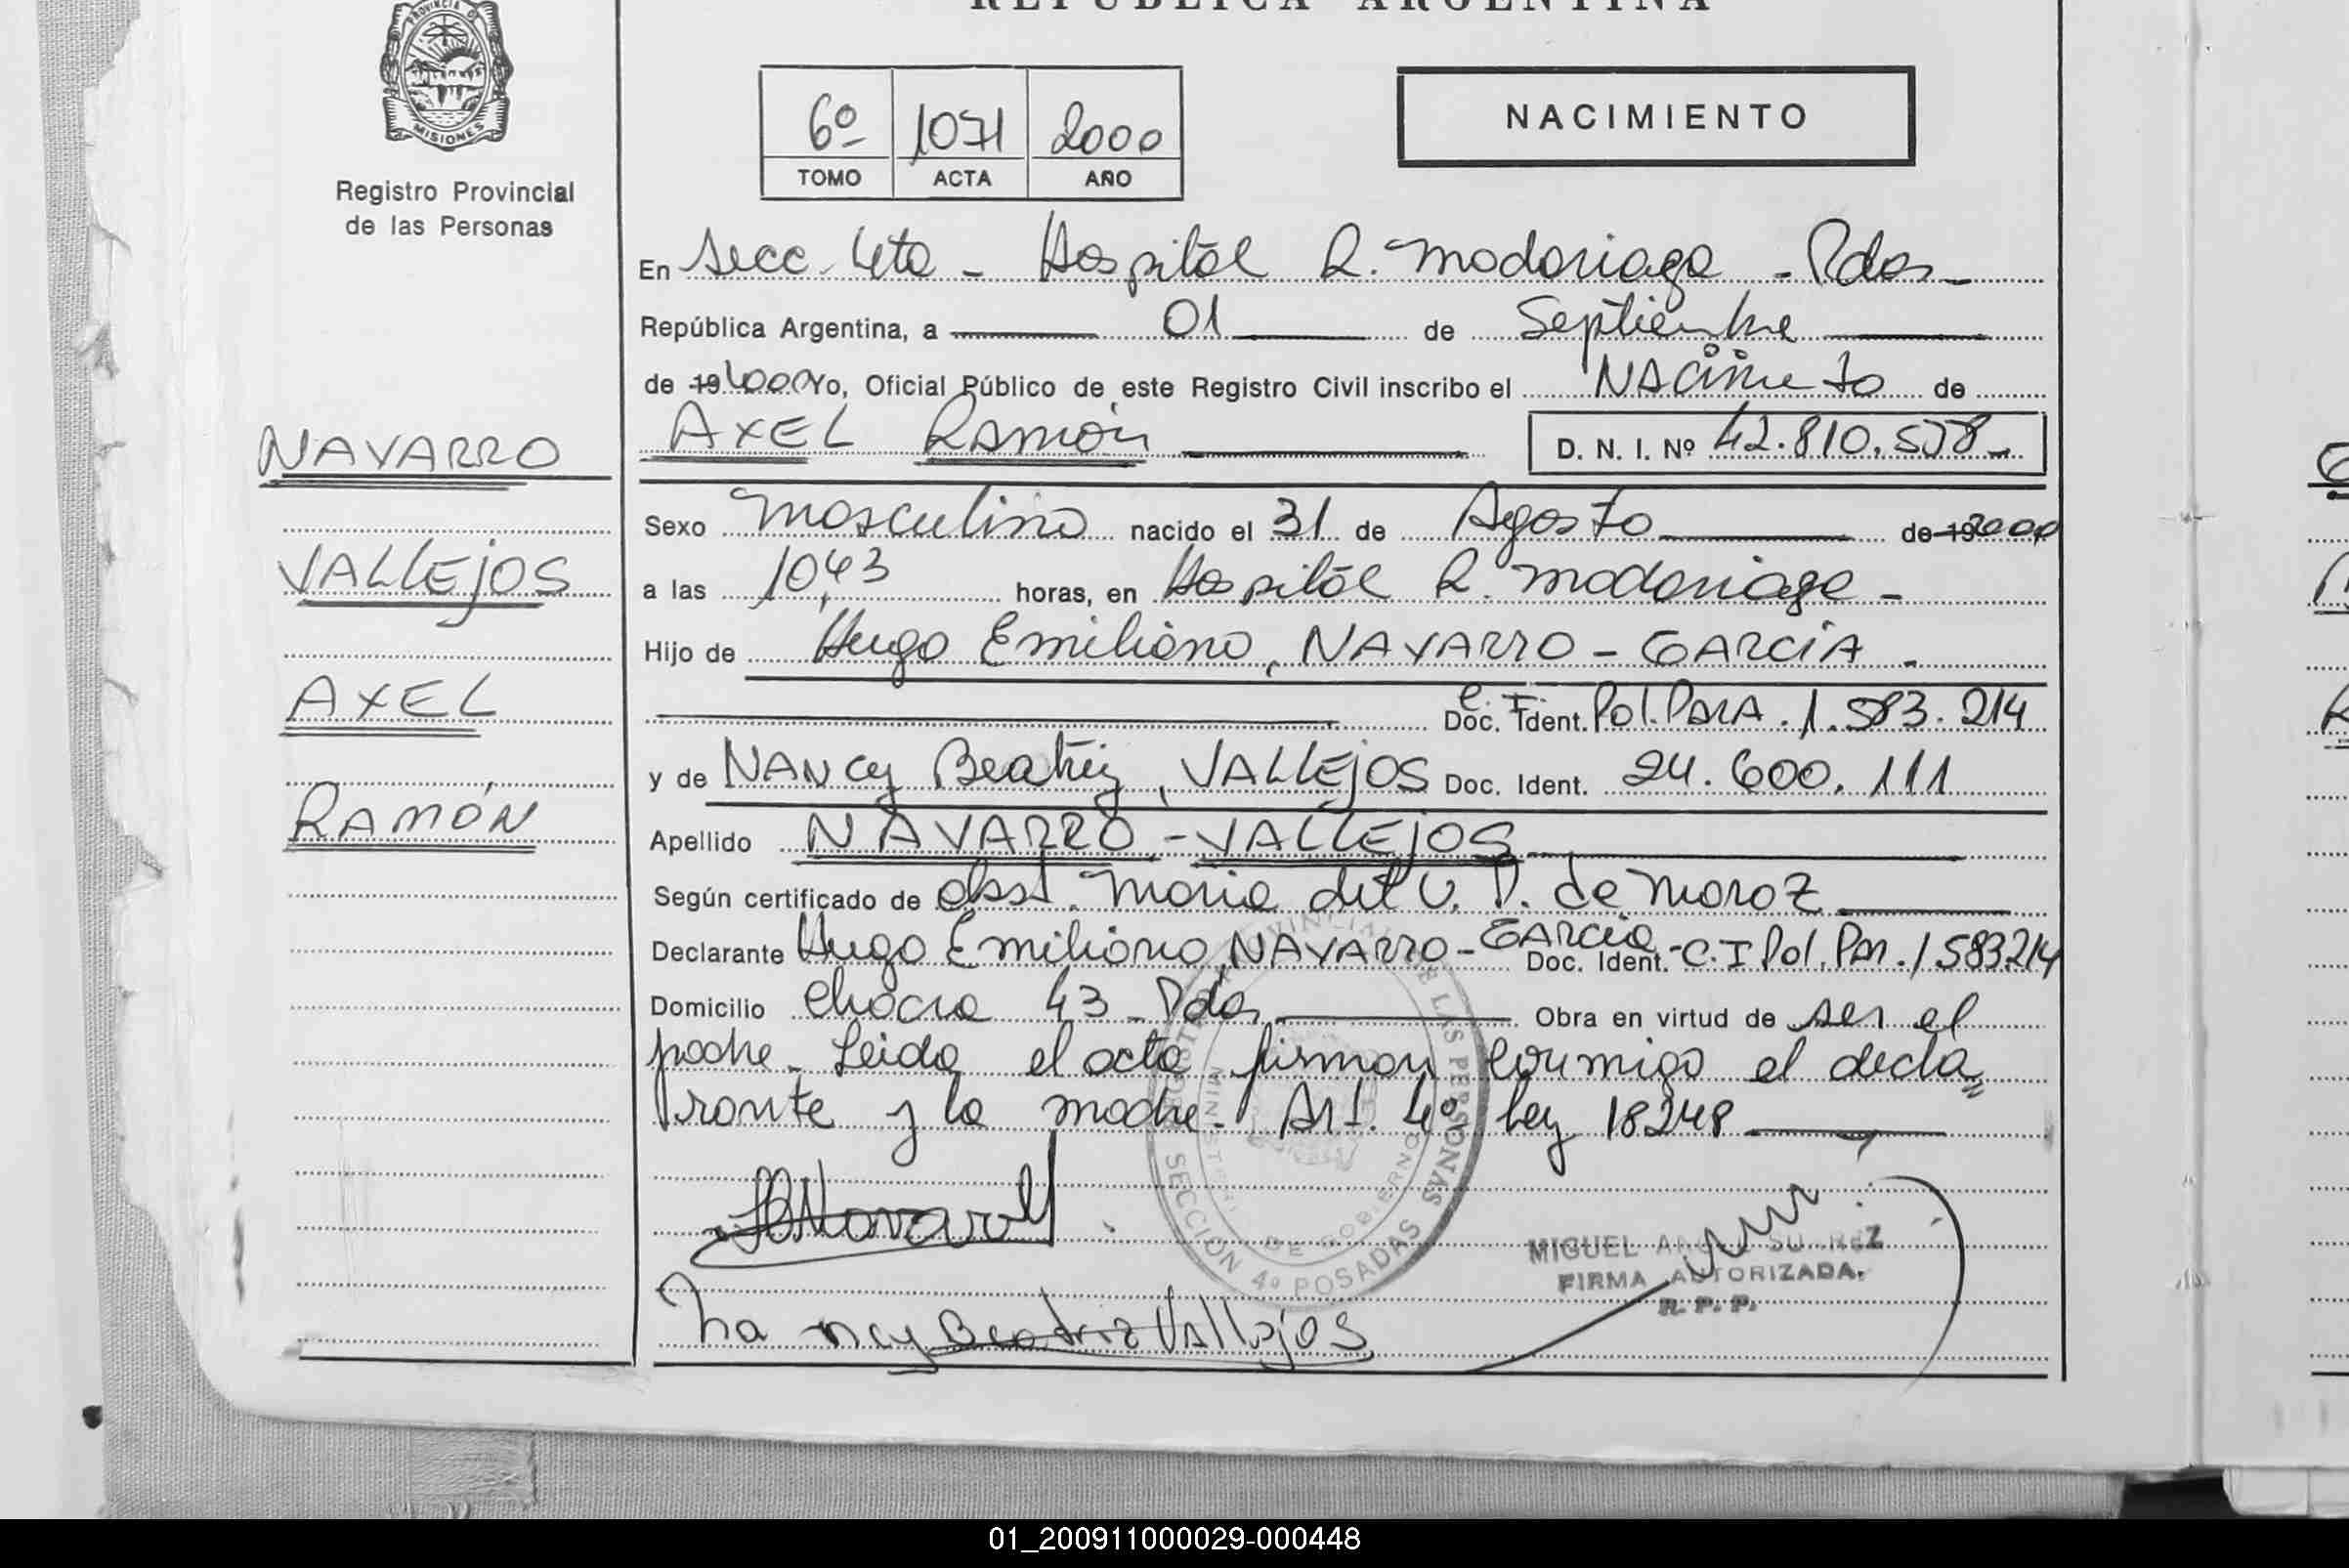 REPUBLICA ARGENTINA
PROVINCIA D
MISIONES
Registro Provincial
de las Personas
6º 1071 2000
TOMO ACTA AÑO
NACIMIENTO
En Secc. 4ta - Hospital R. Madariaga - Pdas -
República Argentina, a 01 de Septiembre
de 19 2000 Yo, Oficial Público de este Registro Civil inscribo el NAcimieto de
AXEL RAmón D. N. I. Nº 42.810.578
NAVARRO
VALLEjOS
AXEL
RAMÓN
Sexo masculino nacido el 31 de Agosto de 19 2000
a las 10,43 horas, en Hospital R. Madariaga -
Hijo de Hugo Emiliano, NAVARRO - GARCÍA -
Doc. Ident. C. I. Pol. PARA. 1.583.214
y de NANcy Beatriz, VALLEjOS Doc. Ident. 24.600.111
Apellido NAVARRO - VALLEjOS
Según certificado de obst. Maria del V. D. de Moroz
Declarante Hugo Emiliano, NAVARRO - GARCIA Doc. Ident. - C.I Pol. PAR. 1583214
Domicilio Chacra 43 - Pdas Obra en virtud de ser el
padre - Leida el acta firman conmigo el decla
rante y la madre - Art. 4º Ley 18248
REGISTRO PROVINCIAL DE LAS PERSONAS
MINISTERIO DE GOBIERNO
SECCION 4º POSADAS
Navarro
MIGUEL ANGEL SUAREZ
FIRMA AUTORIZADA.
R. P. P.
Nancy Beatriz Vallejos
01_200911000029-000448